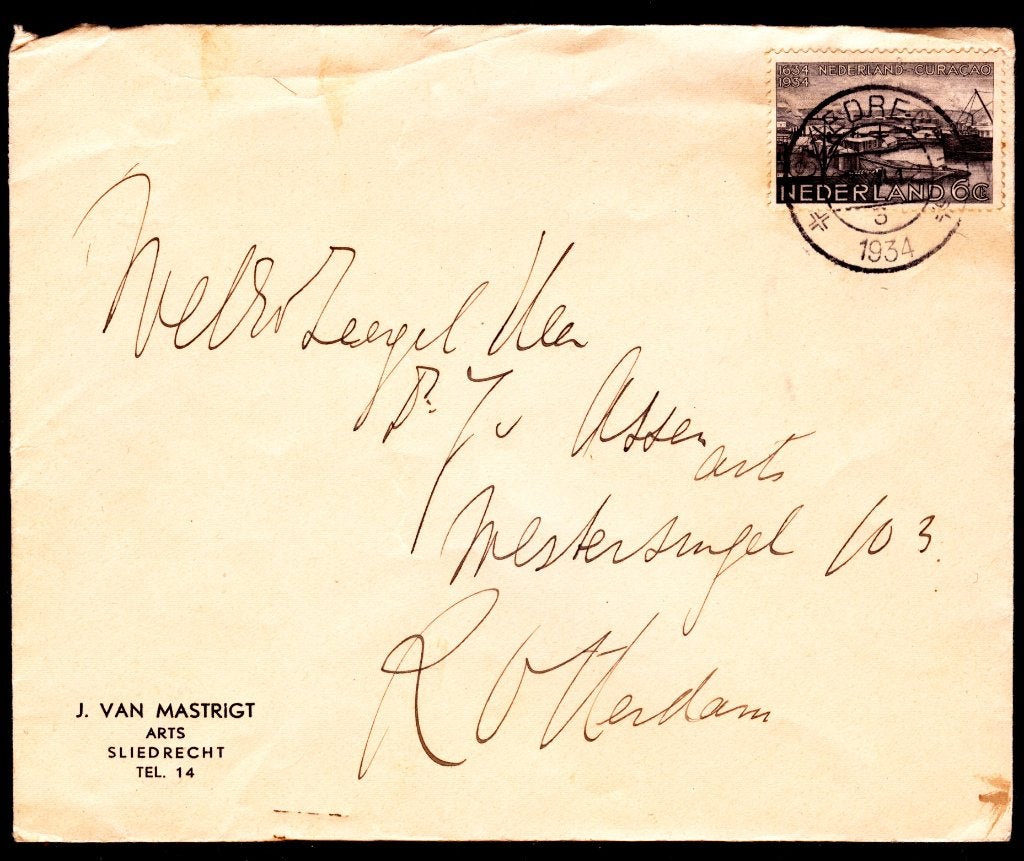 1634 NEDERLAND-CURAÇAO
1934
NEDERLAND 6 C
SLIEDRECHT
3
1934
WelEd Zeergel Heer
Dr. J v Assen
arts
Westersingel 103.
Rotterdam
J. VAN MASTRIGT
ARTS
SLIEDRECHT
TEL. 14